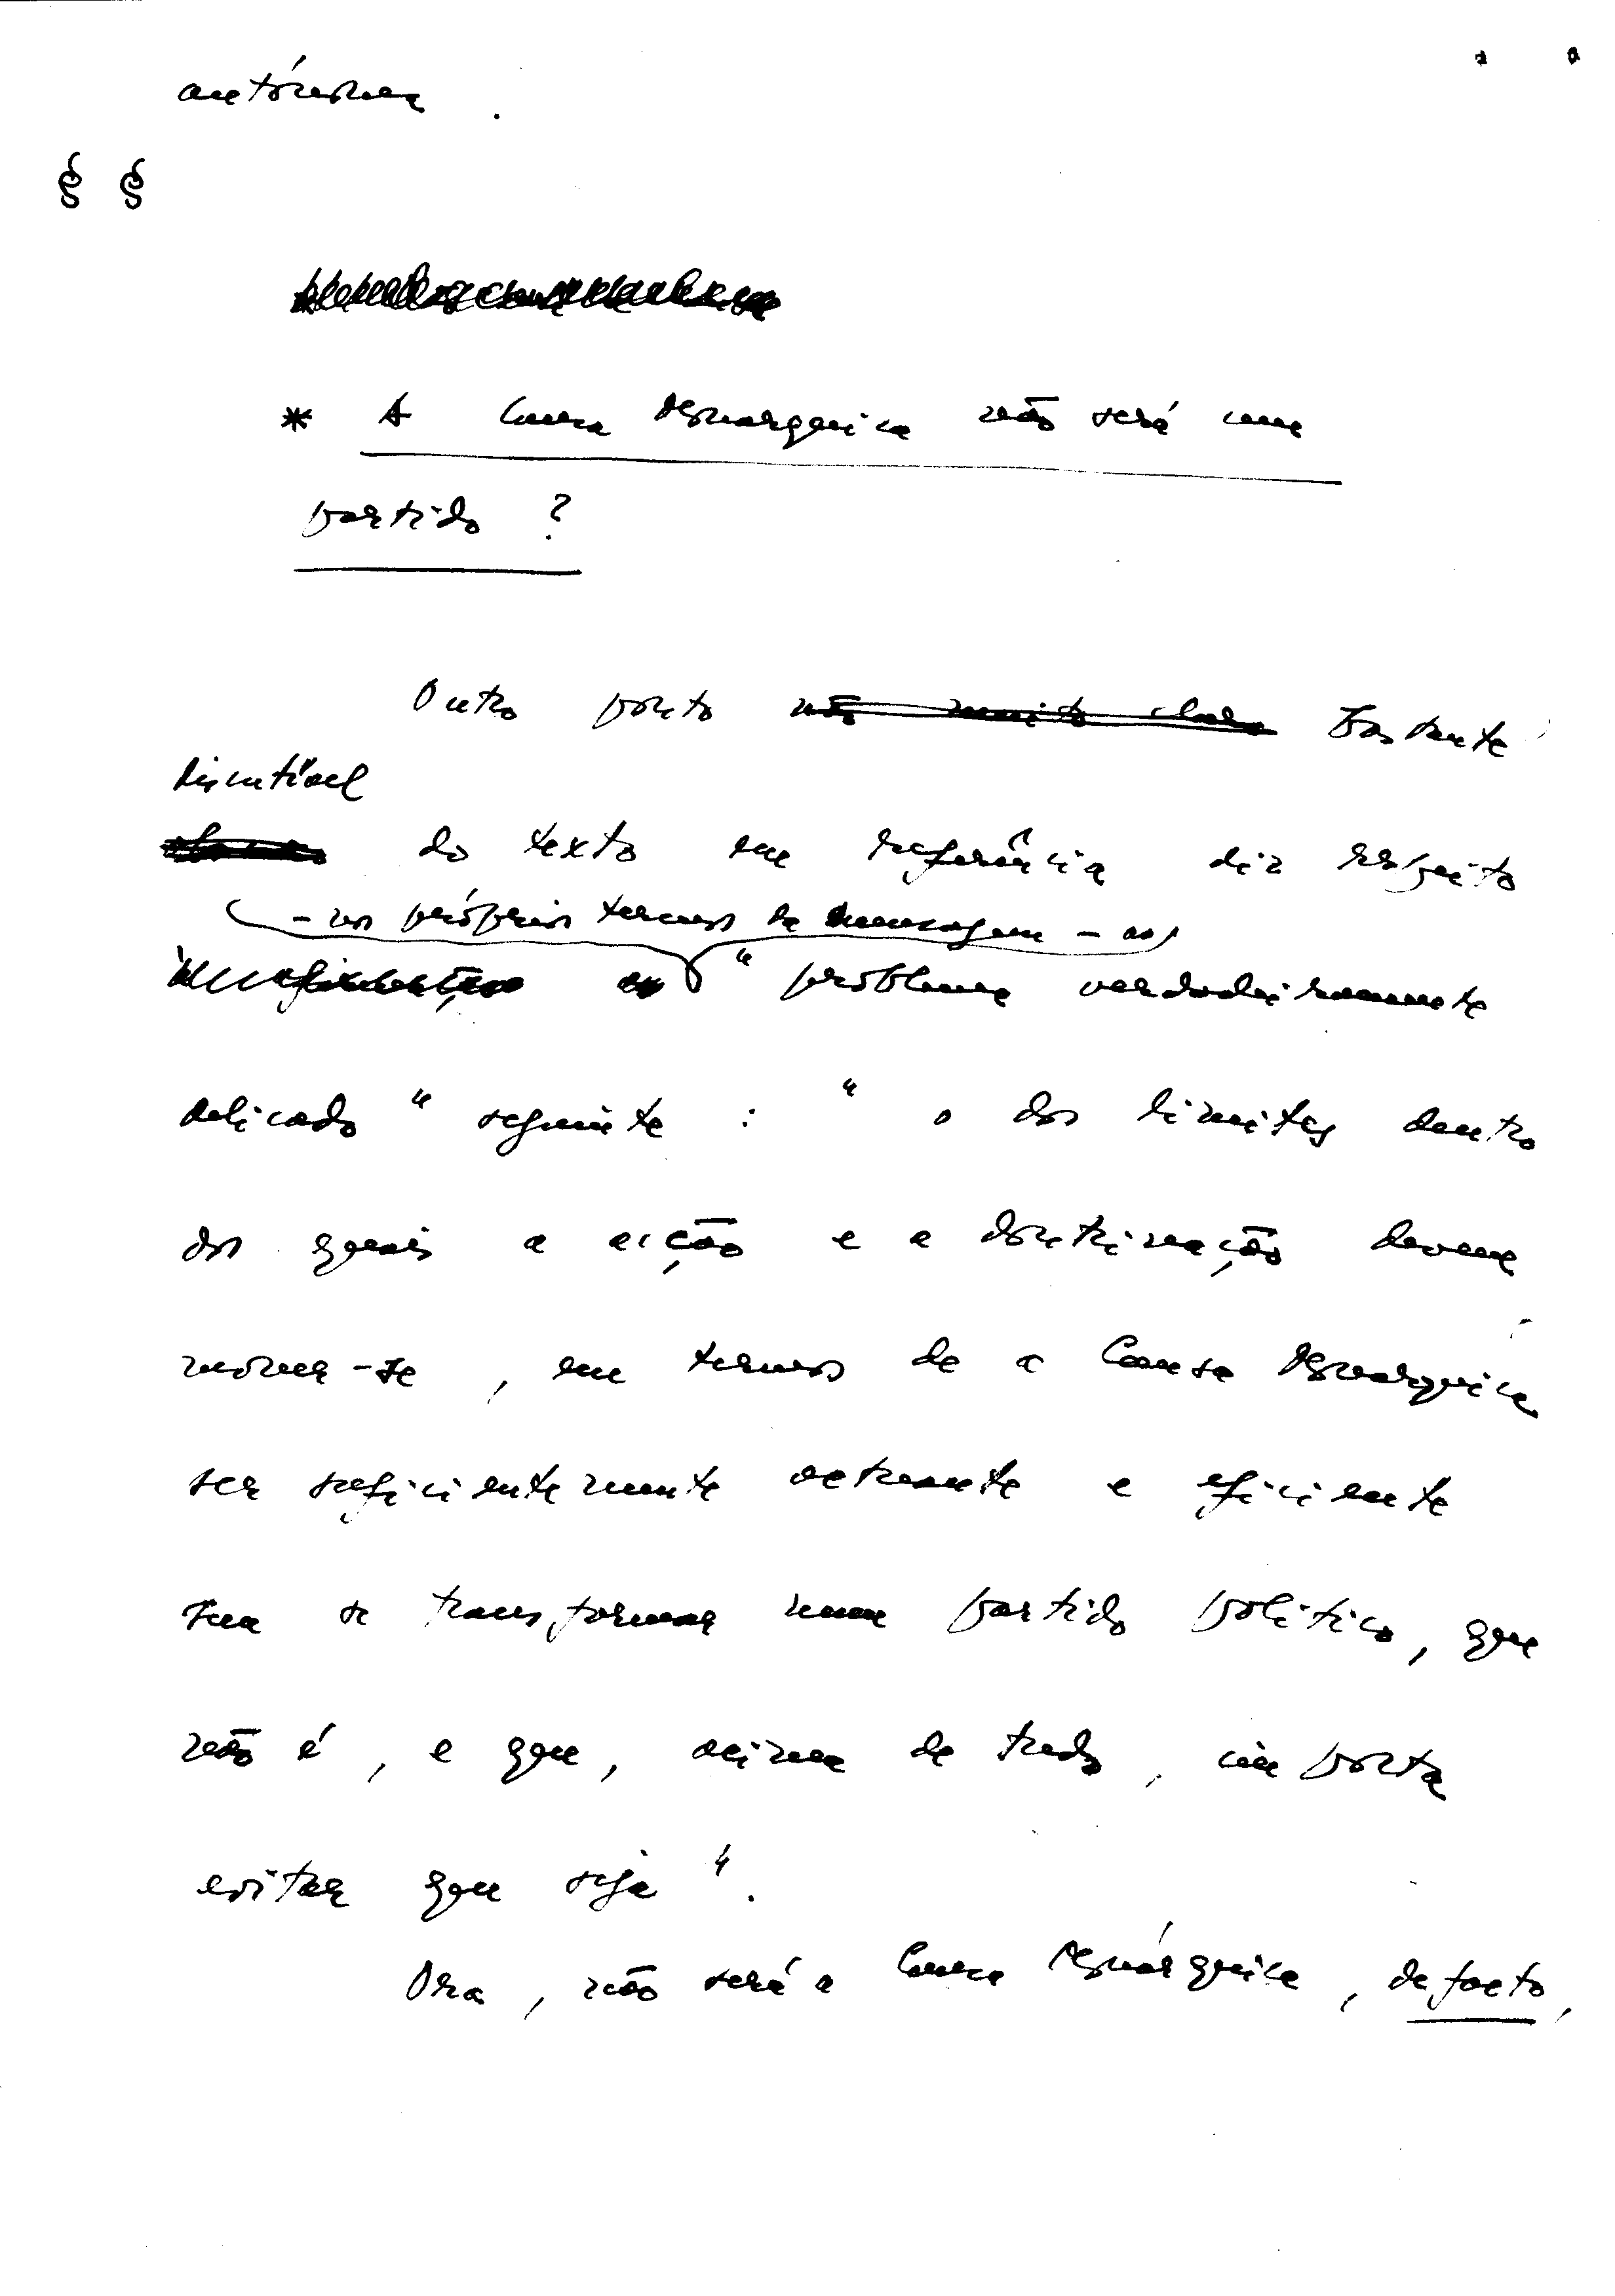 autónoma.
§ §
* A Causa Monárquica não será um
partido ?
Outro ponto não muito claro bastante
discutível
do texto em referência diz respeito
- nos próprios termos da mensagem - ao
" problema verdadeiramente
delicado " seguinte : " o dos limites dentro
dos quais a acção e a doutrinação devem
mover-se , em termos de a Causa Monárquica
ser suficientemente actuante e eficiente
sem se transformar num partido político , que
não é , e que , acima de tudo , importa
evitar que seja " .
Ora , não será a Causa Monárquica , de facto ,